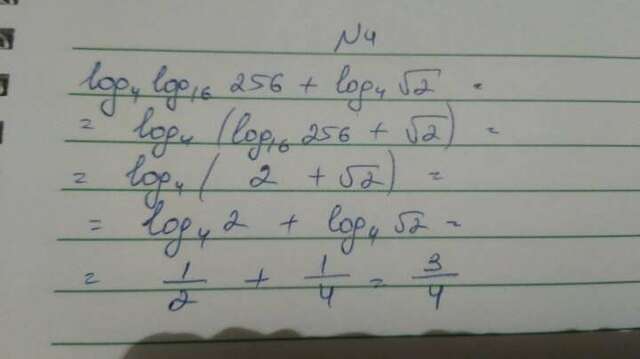 N4
log₄ log₁₆ 256 + log₄ √2 =
= log₄ (log₁₆ 256 + √2) =
= log₄ ( 2 + √2) =
= log₄ 2 + log₄ √2 =
= 1/2 + 1/4 = 3/4